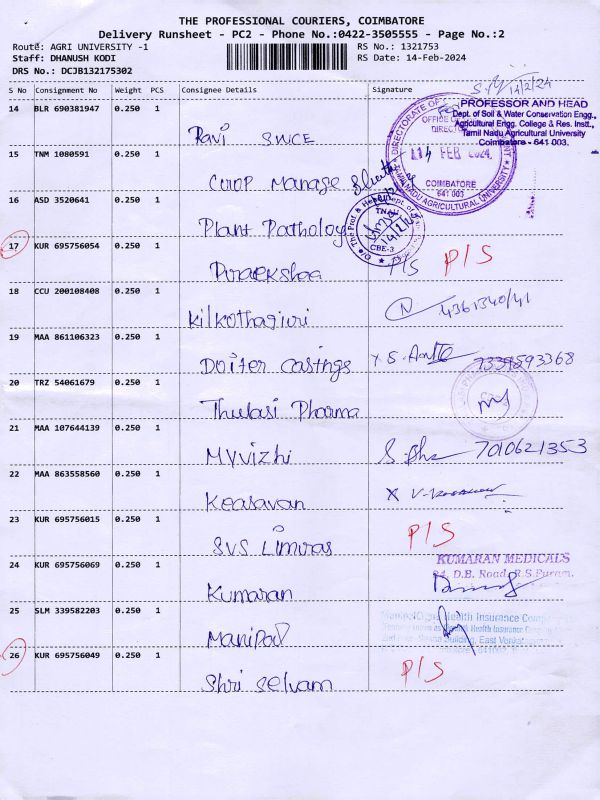 THE PROFESSIONAL COURIERS, COIMBATORE
Delivery Runsheet - PC2 - Phone No.:0422-3505555 - Page No.:2
Route: AGRI UNIVERSITY -1
RS No.: 1321753
Staff: DHANUSH KODI
RS Date: 14-Feb-2024
DRS No.: DCJB132175302
S No Consignment No Weight PCS Consignee Details Signature
14/2/24
14 BLR 690381947 0.250 1
Ravi SWCE
PROFESSOR AND HEAD
Dept. of Soil & Water Conservation Engg.,
Agricultural Engg. College & Res. Instt.,
Tamil Nadu Agricultural University
Coimbatore - 641 003.
14 FEB 2024
COIMBATORE
641 003
TAMILNADU AGRICULTURAL UNIVERSITY
15 TNM 1080591 0.250 1
Coop Manage
16 ASD 3520641 0.250 1
Plant Pathology
TNAU
14/2/24
CBE-3
17 KUR 695756054 0.250 1
P/S P/S
18 CCU 200108408 0.250 1
Kilkothagiri
N 4361340/41
19 MAA 861106323 0.250 1
Doifer Castings
20 TRZ 54061679 0.250 1
Thulasi Pharma
21 MAA 107644139 0.250 1
Myvizhi
7010621353
22 MAA 863558560 0.250 1
Keasavan
23 KUR 695756015 0.250 1
P/S
24 KUR 695756069 0.250 1
Kumaran
KUMARAN MEDICALS
D.B. Road, R.S.Puram.
25 SLM 339582203 0.250 1
Manipal
Health Insurance
26 KUR 695756049 0.250 1
Shri Selvam
P/S